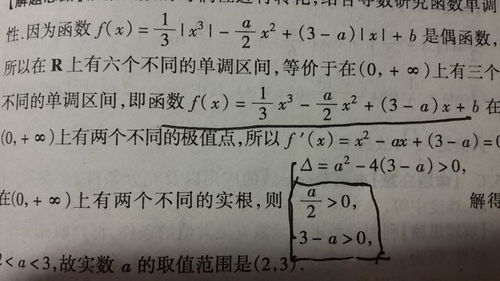 转化,结合导数研究函数单调
性.因为函数 f(x) = 1/3|x³| - a/2 x² + (3 - a)|x| + b 是偶函数,
所以在 R 上有六个不同的单调区间,等价于在(0, + ∞)上有三个
不同的单调区间,即函数 f(x) = 1/3 x³ - a/2 x² + (3 - a)x + b 在
(0, + ∞)上有两个不同的极值点,所以 f′(x) = x² - ax + (3 - a) = 0
在(0, + ∞)上有两个不同的实根,则 { Δ = a² - 4(3 - a) > 0, a/2 > 0, 3 - a > 0, 解得
2 < a < 3,故实数 a 的取值范围是(2,3).